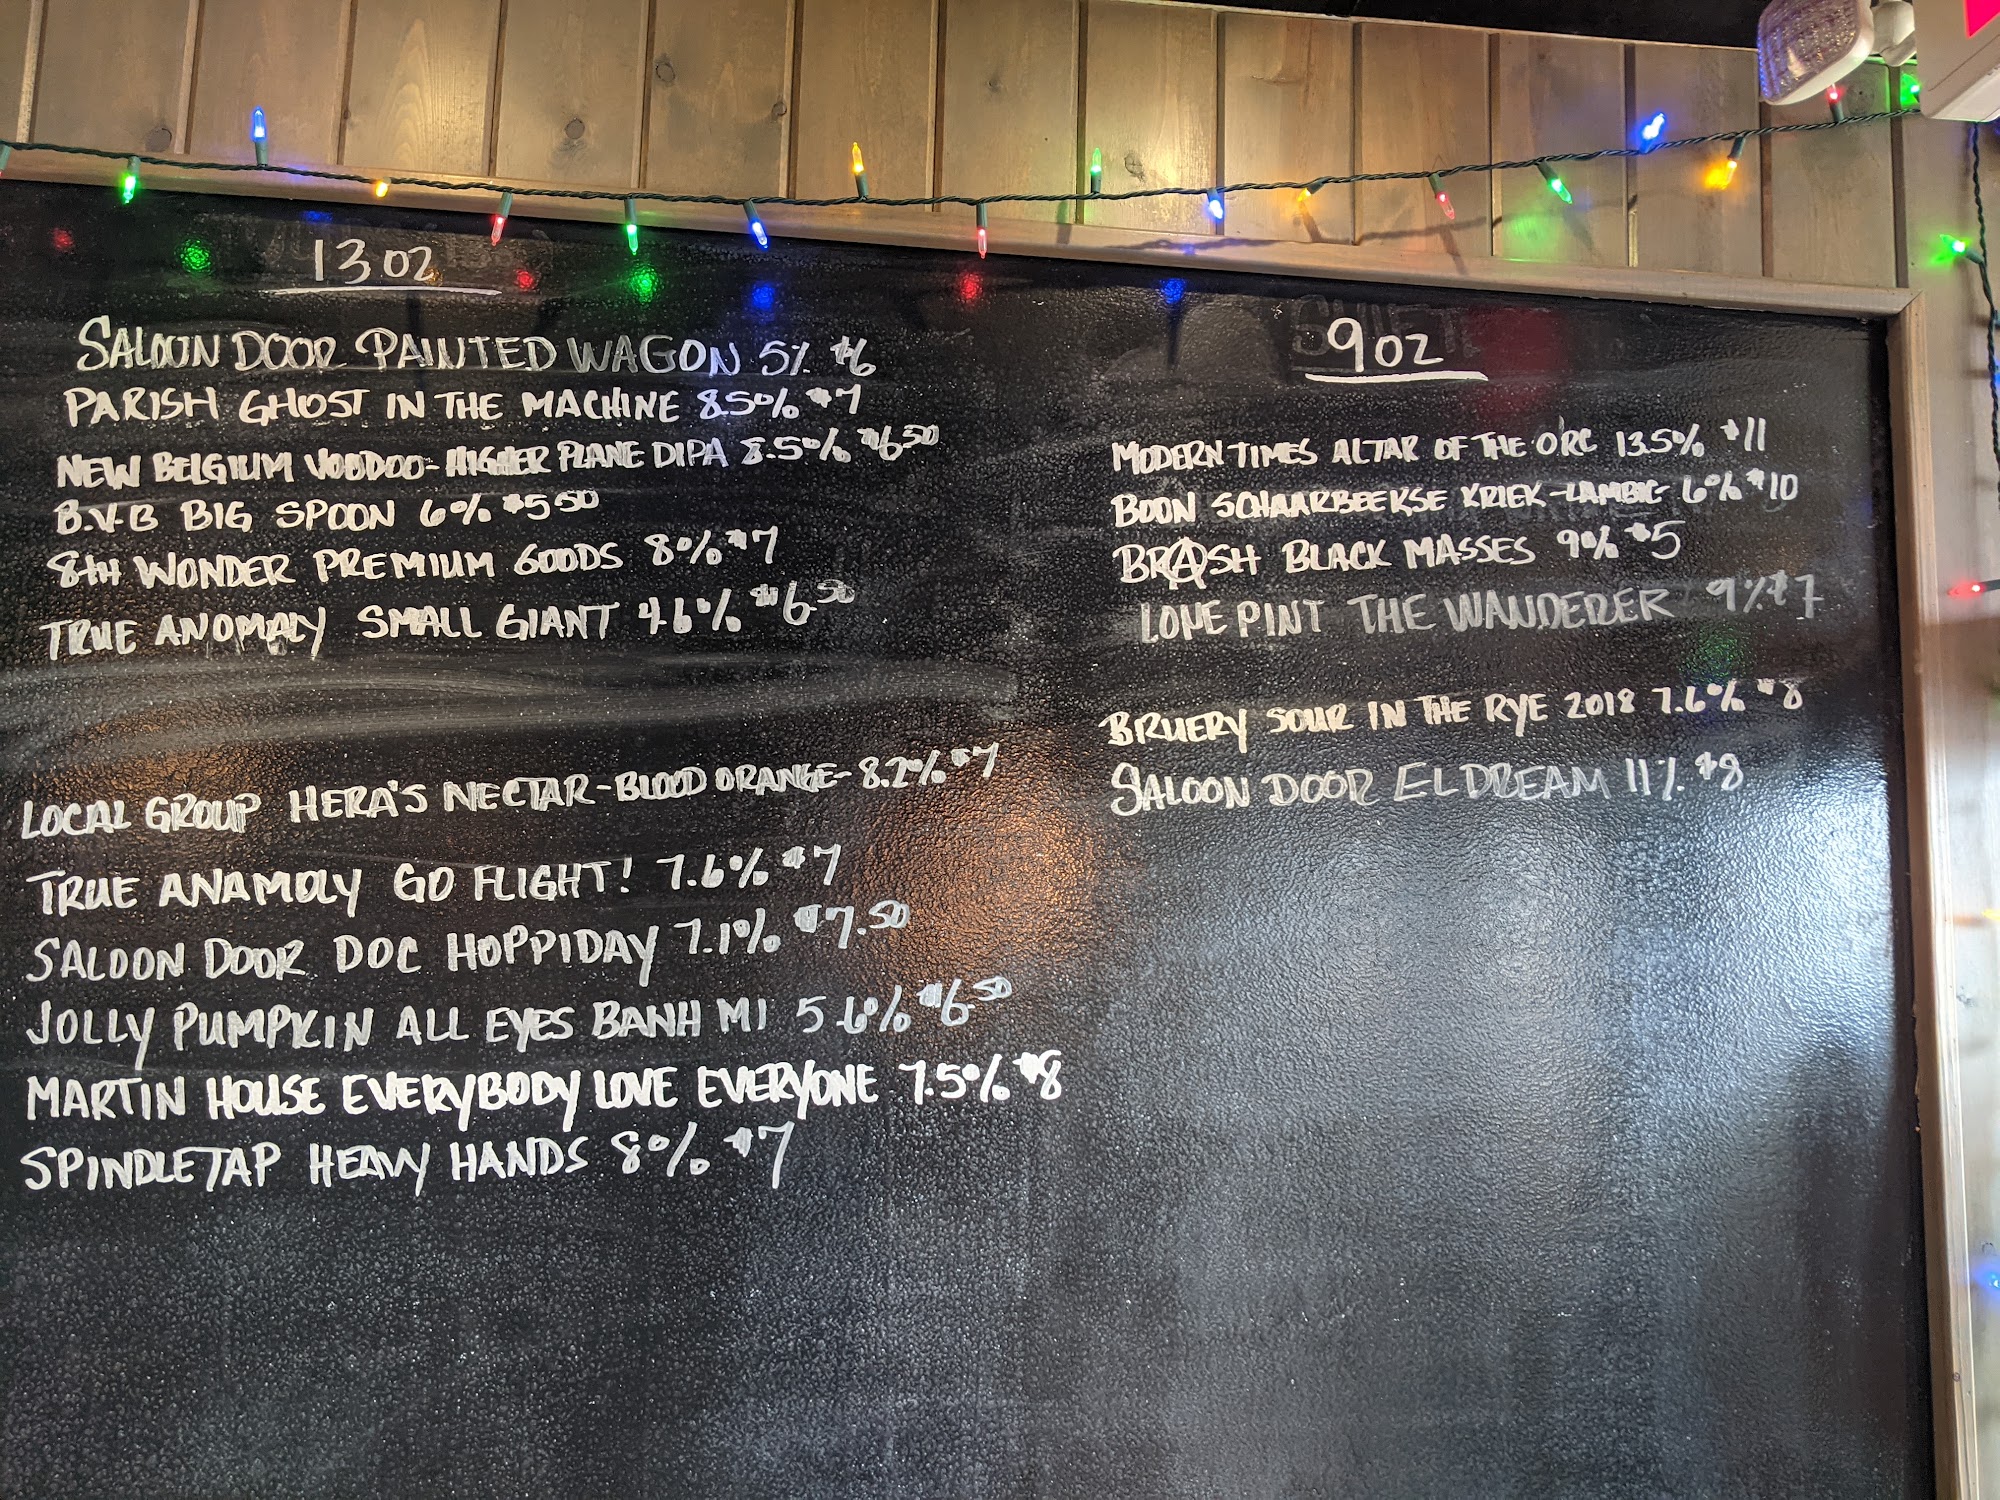 13oz
SALOON DOOR PAINTED WAGON 5% $6
PARISH GHOST IN THE MACHINE 8.5% $7
NEW BELGIUM VOODOO-HIGHER PLANE DIPA 8.5% $6.50
B.V.B BIG SPOON 6% $5.50
8TH WONDER PREMIUM GOODS 8% $7
TRUE ANOMALY SMALL GIANT 4.6% $6.50
LOCAL GROUP HERA'S NECTAR-BLOOD ORANGE- 8.2% $7
TRUE ANAMOLY GO FLIGHT! 7.6% $7
SALOON DOOR DOC HOPPIDAY 7.1% $7.50
JOLLY PUMPKIN ALL EYES BANH MI 5.6% $6.50
MARTIN HOUSE EVERYBODY LOVE EVERYONE 7.5% $8
SPINDLETAP HEAVY HANDS 8% $7
9oz
MODERN TIMES ALTAR OF THE ORC 13.5% $11
BOON SCHAARBEEKSE KRIEK-LAMBIC- 6% $10
BRASH BLACK MASSES 9% $5
LONE PINT THE WANDERER 9% $7
BRUERY SOUR IN THE RYE 2018 7.6% $8
SALOON DOOR EL DREAM 11% $8